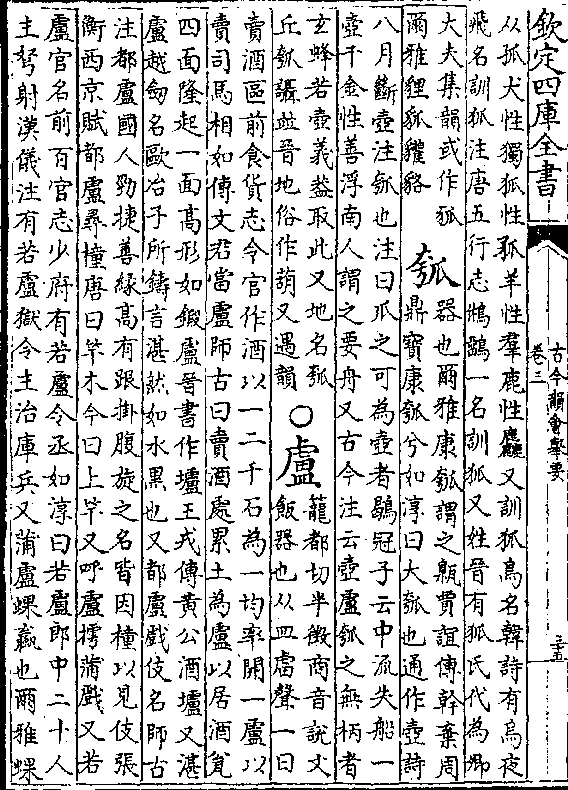 欽定四庫全書
古今韻會舉要
卷三
三五
从狐犬性獨狐性孤羊性羣鹿性麤又訓狐鳥名韓詩有鳥夜
飛名訓狐注唐五行志鵂鶹一名訓狐又姓晉有狐氏代為卿
大夫集韻或作㹱 瓠器也爾雅康瓠謂之甈賈誼傳幹棄周
爾雅貍狐貒貈 鼎寶康瓠兮如淳曰大瓠也通作壺詩
八月斷壺注瓠也注曰瓜之可為壺者鶡冠子云中流失船一
壺千金性善浮南人謂之要舟又古今注云壺盧瓠之無柄者
玄蜂若壺義葢取此又地名瓠
丘瓠讘並晉地俗作葫又遇韻 ○盧籠都切半徵商音說文
飯器也从皿𧆨聲一曰
賣酒區前食貨志令官作酒以一二千石為一均率開一盧以
賣司馬相如傳文君當盧師古曰賣酒處累土為盧以居酒瓮
四面隆起一面髙形如鍛盧晉書作壚王戎傳黄公酒壚又湛
盧越劒名歐冶子所鑄言湛然如水黒也又都盧戲伎名師古
注都盧國人勁捷善緣髙有跟挂腹旋之名皆因橦以見伎張
衡西京賦都盧尋橦唐曰竿木今曰上竿又呼盧摴蒲戲又若
盧官名前百官志少府有若盧令丞如淳曰若盧郎中二十人
主弩射漢儀注有若盧獄令主治庫兵又蒲盧蜾蠃也爾雅蜾